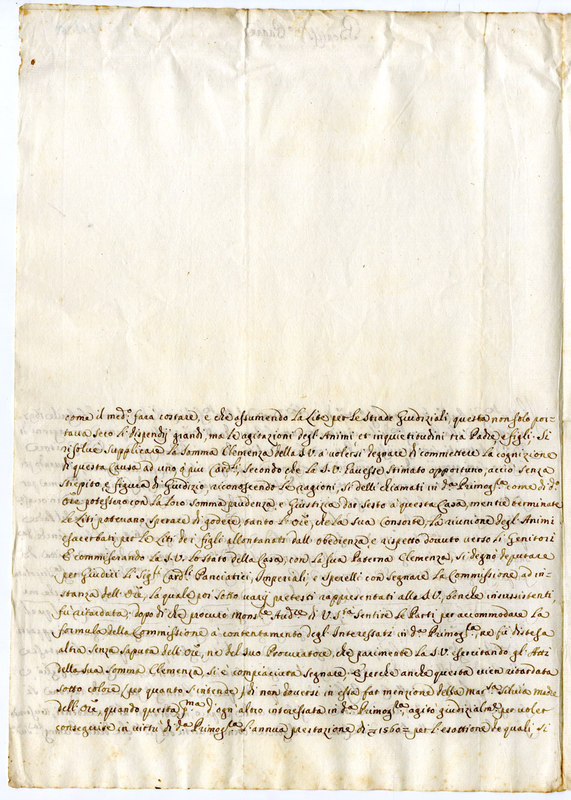 come il med.º farà costare, e che assumendo la Lite per le strade Giudiziali, questa non solo por=
tava seco li dispendij grandi, ma le agitazioni degli Animi et inquietitudini trà Padre, e figli. Si
risolue supplicare la Somma Clemenza della S.V. a volersi degnare di commettere la cognizione
di questa Causa ad uno ò più Card.li secondo che la S.V. havesse stimato opportuno, acciò senza
strepito, e figura di Giudizio, riconoscendo le ragioni, sì delli chiamati in d.ª Primog.ra come di d.º
Ore potessero con la loro somma prudenza, e Giustizia dar sesto a questa Casa, mentre terminate
le Liti potevano sperare di godere, tanto l'Ore, che la sua Consorte, la riunione degli Animi
esacerbati per le Liti dei figli allontanati dall'obedienza, e rispetto dovuto verso li Genitori
E commiserando la S.V. lo stato della Casa, con la sua Paterna Clemenza, si degnò deputare
per Giudici li Sig.ri Card.li Panciatici, Imperiali, e Sperelli con segnare la Commissione, ad in=
stanza dell'Ore, la quale poi sotto varij pretesti rappresentati alla S.V., benche insussistenti
fù ritardata; dopo di che procurò Mons.re Aud.re di V. S.tà sentire le Parti per accommodare la
formula della Commissione a contentamento degl'Interessati in d.ª Primog.ra, ne fù distesa
altra senza saputa dell'Ore, ne del suo Procuratore, che parimente la S.V. esercitando gl'Atti
della sua Somma Clemenza si è compiaciuta segnare. E perche anche questa vien ritardata
sotto colore (per quanto s'intende) di non doversi in essa far menzione della Mar.sa Silvia madre
dell'Ore, quando questa p.ma d'ogn'altro interessata in d.ª Primog.ra, agitò giudizialm.te per voler
conseguire in virtù di d.ª Primog.ra l'annua prestazione di 1560 = per l'esattione de quali si